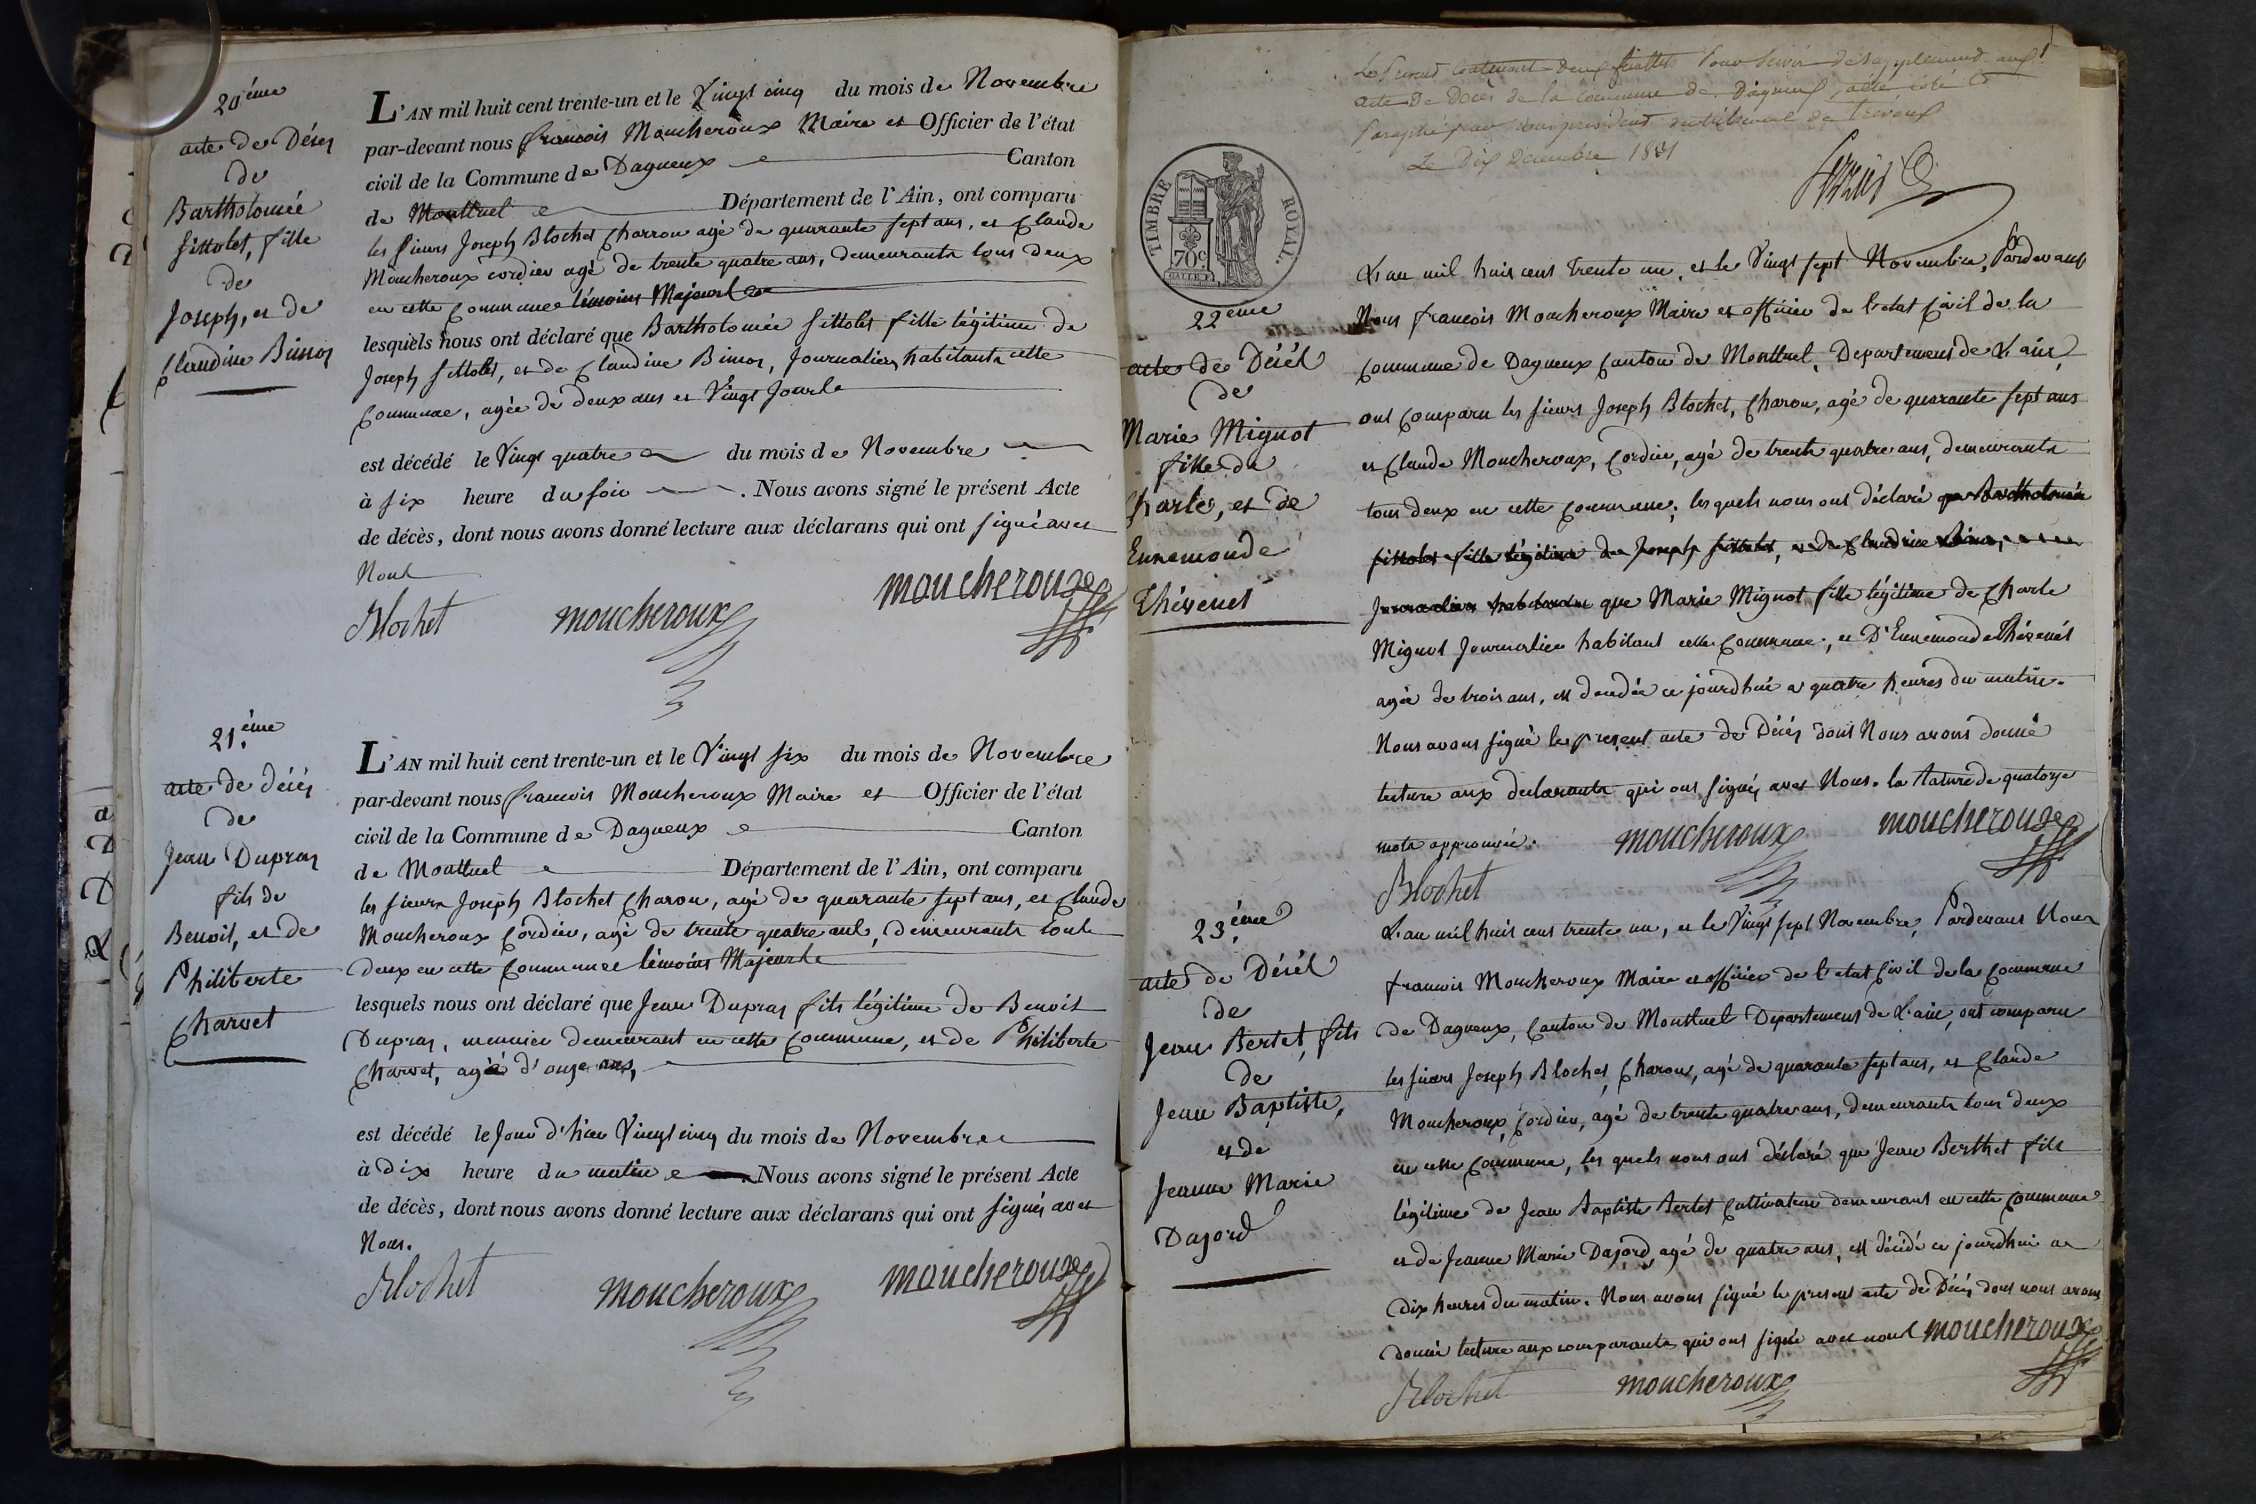 20ème
acte de Décès
de
Bartholomée
Sittolet, fille
de
Joseph, et de
Claudine Bimos
L'AN mil huit cent trente-un et le Vingt cinq du mois de Novembre
par-devant nous françois Moucheroux Maire et Officier de l'état
civil de la Commune de Dagneux Canton
de Montluel Département de l'Ain, ont comparu
les sieurs Joseph Blochet Charron agé de quarante sept ans, et Claude
Moucheroux cordier agé de trente quatre ans, demeurants tous deux
en cette Commune témoins Majeurs
lesquels nous ont déclaré que Bartholomée Sittolet fille légitime de
Joseph Sittolet, et de Claudine Bimos, Journalier habitants cette
Commune, agée de deux ans et Vingt Jours
est décédé le Vingt quatre du mois de Novembre
à six heure du soir . Nous avons signé le présent Acte
de décès, dont nous avons donné lecture aux déclarans qui ont signé avec
Nous
Blochet moucheroux moucheroux
21.ème
acte de décès
de
Jean Dupras
fils de
Benoit, et de
Philiberte
Charvet
L'AN mil huit cent trente-un et le Vingt six du mois de Novembre
par-devant nous françois Moucheroux Maire et Officier de l'état
civil de la Commune de Dagneux Canton
de Montluel Département de l'Ain, ont comparu
les sieurs Joseph Blochet Charon, agé de quarante sept ans, et Claude
Moucheroux Cordier, agé de trente quatre ans, demeurants tous
deux en cette Commune témoins Majeurs
lesquels nous ont déclaré que Jean Dupras fils légitime de Benoit
Dupras, meunier demeurant en cette Commune, et de Philiberte
Charvet, agé d'onze ans,
est décédé le Jour d'hier Vingt cinq du mois de Novembre
à Dix heure du matin Nous avons signé le présent Acte
de décès, dont nous avons donné lecture aux déclarans qui ont signés avec
Nous.
Blochet moucheroux moucheroux
Le présent contenant deux feuillets pour servir de supplément aux
acte de Décès de la commune de Dagneux, a été coté et
Paraphé par nous président du tribunal de Trévoux
Le Dix Décembre 1831
TIMBRE ROYAL.
70c
22ème
acte de Décès
de
Marie Mignot
fille de
Charle, et de
Ennemonde
Thévenet
L'an mil huit cent trente un, et le Vingt sept Novembre, Pardevant
Nous françois Moucheroux Maire et officier de l'etat Civil de la
Commune de Dagneux Canton de Montluel, Departement de L'ain,
ont comparu les sieurs Joseph Blochet, Charon, agé de quarante sept ans
et Claude Moucheroux, Cordier, agé de trente quatre ans, demeurants
tous deux en cette Commune; les quels nous ont déclaré que Bartholomée
Sittolet fille légitime de Joseph Sittolet, et de Claudine Bimos,
Journalier habitants que Marie Mignot fille légitime de Charle
Mignot Journalier habitant cette Commune, et D'Ennemonde Thévenet
agée de trois ans, est décédée ce jourdhui a quatre heures du matin.
Nous avons signé les present acte de Décès dont Nous avons donné
lecture aux declarants qui ont signés avec Nous. la rature de quatorze
mots approuvée.
moucheroux moucheroux
Blochet
23.ème
acte de Décès
de
Jean Bertet, fils
de
Jean Baptiste,
et de
Jeanne Marie
Dajord
L'an mil huit cent trente un, et le Vingt sept Novembre, Pardevant Nous
françois Moucheroux Maire et officier de l'etat Civil de la Commune
de Dagneux, Canton de Montluel Departement de L'ain, ont comparu
les sieurs Joseph Blochet, Charon, agé de quarante sept ans, et Claude
Moucheroux, Cordier, agé de trente quatre ans, demeurants tous deux
en cette Commune, les quels nous ont déclaré que Jean Berthet fils
légitime de Jean Baptiste Bertet Cultivateur demeurant en cette Commune
et de Jeanne Marie Dajord, agé de quatre ans, est décédé ce jourdhui a
dix heures du matin. Nous avons signé le present acte de Décès dont nous avons
donné lecture aux comparants qui ont signé avec nous moucheroux
Blochet moucheroux